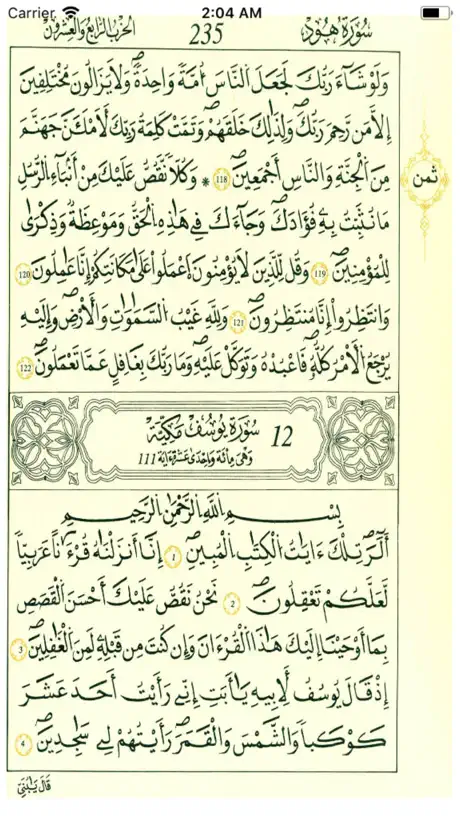 Carrier 2:04 AM
سُورَةُ هُودٍ 235 الحِزْبُ الرَّابِعُ وَالْعِشْرُونَ
وَلَوْ شَآءَ رَبُّكَ لَجَعَلَ النَّاسَ أُمَّةً وَاحِدَةً وَلَا يَزَالُونَ مُخْتَلِفِينَ
إِلَّا مَن رَّحِمَ رَبُّكَ وَلِذَٰلِكَ خَلَقَهُمْ وَتَمَّتْ كَلِمَةُ رَبِّكَ لَأَمْلَأَنَّ جَهَنَّمَ
مِنَ الْجِنَّةِ وَالنَّاسِ أَجْمَعِينَ 118 * وَكُلّاً نَّقُصُّ عَلَيْكَ مِنْ أَنۢبَآءِ الرُّسُلِ
مَا نُثَبِّتُ بِهِ فُؤَادَكَ وَجَآءَكَ فِي هَٰذِهِ الْحَقُّ وَمَوْعِظَةٌ وَذِكْرَىٰ
لِلْمُؤْمِنِينَ 119 وَقُل لِّلَّذِينَ لَا يُؤْمِنُونَ اعْمَلُوا عَلَىٰ مَكَانَتِكُمْ إِنَّا عَٰمِلُونَ 120
وَانتَظِرُوا إِنَّا مُنتَظِرُونَ 121 وَلِلَّهِ غَيْبُ السَّمَٰوَٰتِ وَالْأَرْضِ وَإِلَيْهِ
يَرْجِعُ الْأَمْرُ كُلُّهُ فَاعْبُدْهُ وَتَوَكَّلْ عَلَيْهِ وَمَا رَبُّكَ بِغَٰفِلٍ عَمَّا تَعْمَلُونَ 122
ثمن
12 سُورَةُ يُوسُفَ مَكِّيَّة
وَهْيَ مِائَة وَإِحْدَى عَشْرَةَ ءَايَة 111
بِسْمِ اللَّهِ الرَّحْمَٰنِ الرَّحِيمِ
أَلَٓر تِلْكَ ءَايَٰتُ الْكِتَٰبِ الْمُبِينِ 1 إِنَّا أَنزَلْنَٰهُ قُرْءَٰناً عَرَبِيّاً
لَّعَلَّكُمْ تَعْقِلُونَ 2 نَحْنُ نَقُصُّ عَلَيْكَ أَحْسَنَ الْقَصَصِ
بِمَا أَوْحَيْنَا إِلَيْكَ هَٰذَا الْقُرْءَانَ وَإِن كُنتَ مِن قَبْلِهِ لَمِنَ الْغَٰفِلِينَ 3
إِذْ قَالَ يُوسُفُ لِأَبِيهِ يَٰأَبَتِ إِنِّي رَأَيْتُ أَحَدَ عَشَرَ
كَوْكَباً وَالشَّمْسَ وَالْقَمَرَ رَأَيْتُهُمْ لِي سَٰجِدِينَ 4
قَالَ يَٰبُنَيِّ